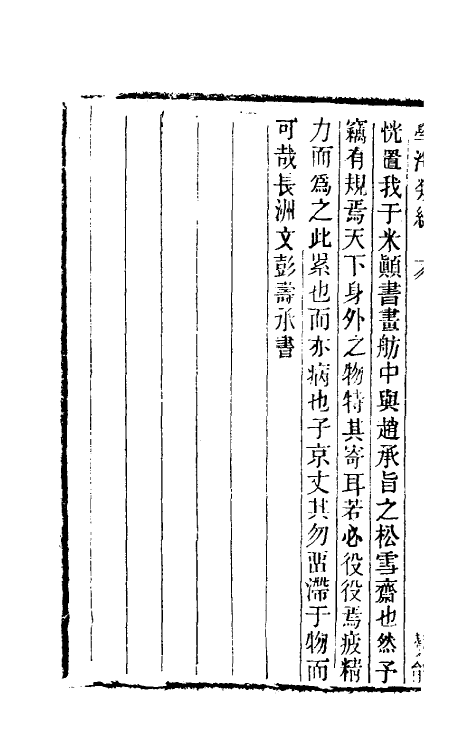 恍置我于米顚書畫舫中與趙承旨之松雪齋也然予
竊有規焉天下身外之物特其寄耳若必役役焉疲精
力而爲之此累也而亦病也子京丈其勿畱滯于物而
可哉長洲文彭壽承書